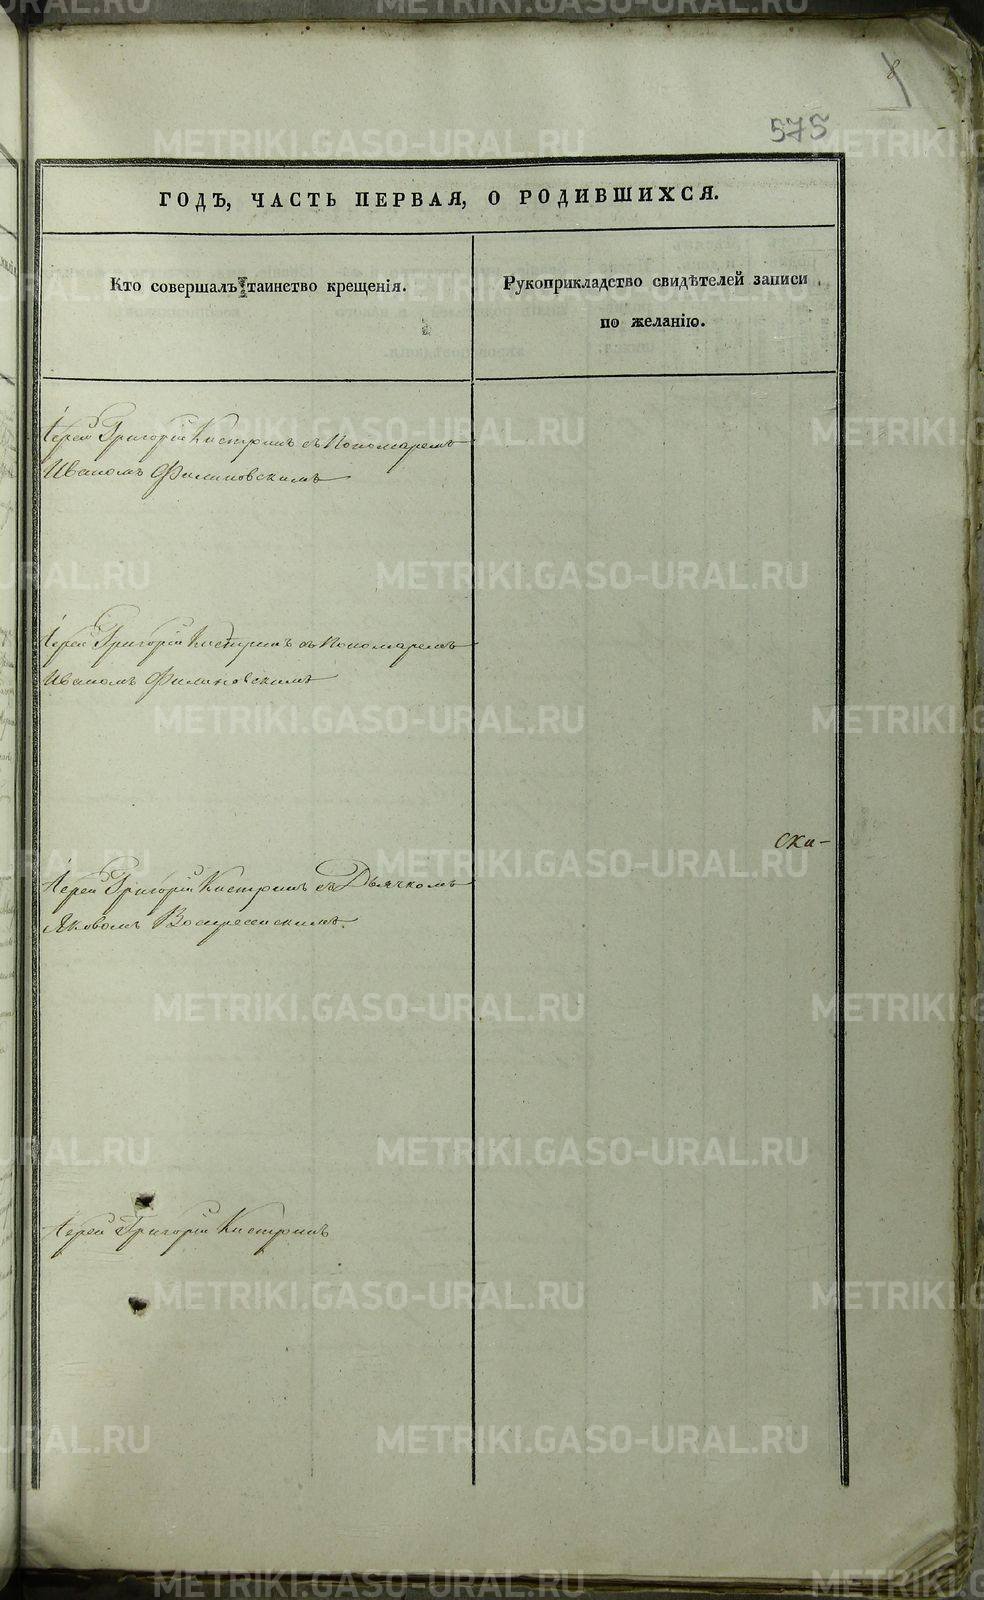 8
575
ГОДЪ, ЧАСТЬ ПЕРВАЯ, О РОДИВШИХСЯ.
Кто совершалъ таинство крещенія.
Рукоприкладство свидѣтелей записи
по желанію.
Іерей Григорій Кистринъ съ Пономаремъ
Иваномъ Филиновскимъ
Іерей Григорій Кистринъ съ Пономаремъ
Иваномъ Филиновскимъ
ска-
Іерей Григорій Кистринъ съ Дьячкомъ
Яковомъ Воскресенскимъ.
Іерей Григорій Кистринъ
METRIKI.GASO-URAL.RU